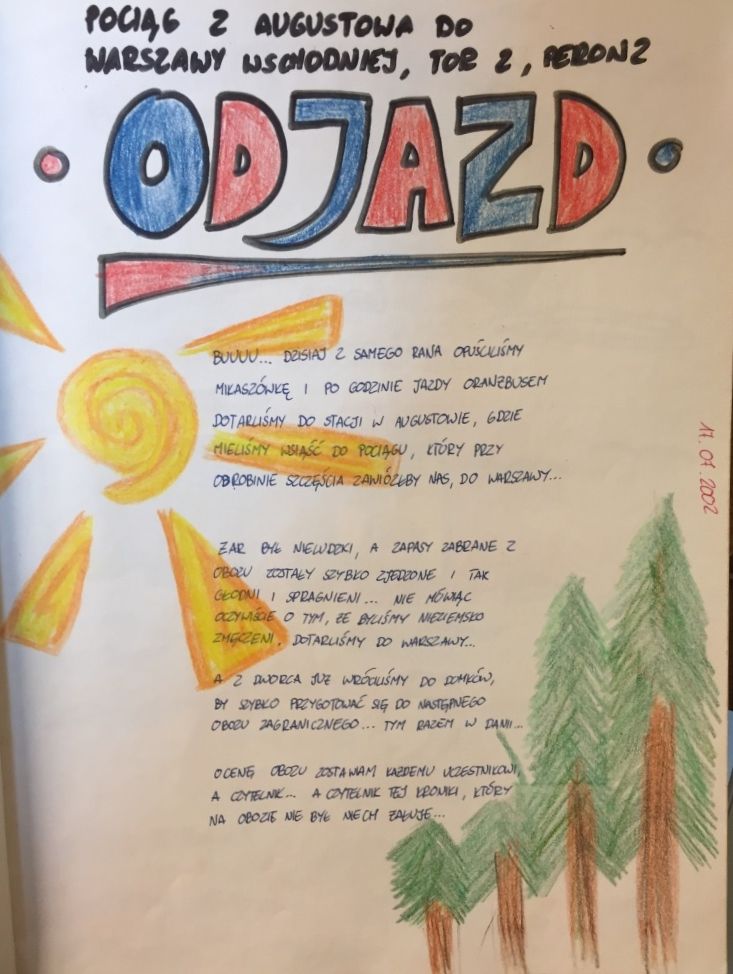 POCIĄG Z AUGUSTOWA DO
WARSZAWY WSCHODNIEJ, TOR 2, PERON 2
• ODJAZD •
BUUUU... DZISIAJ Z SAMEGO RANA OPUŚCILIŚMY
MIKASZÓWKĘ I PO GODZINIE JAZDY ORANŻBUSEM
DOTARLIŚMY DO STACJI W AUGUSTOWIE, GDZIE
MIELIŚMY WSIĄŚĆ DO POCIĄGU, KTÓRY PRZY
ODROBINIE SZCZĘŚCIA ZAWIÓZŁBY NAS, DO WARSZAWY...
ŻAR BYŁ NIELUDZKI, A ZAPASY ZABRANE Z
OBOZU ZOSTAŁY SZYBKO ZJEDZONE I TAK
GŁODNI I SPRAGNIENI... NIE MÓWIĄC
OCZYWIŚCIE O TYM, ŻE BYLIŚMY NIEZIEMSKO
ZMĘCZENI, DOTARLIŚMY DO WARSZAWY...
A Z DWORCA JUŻ WRÓCILIŚMY DO DOMKÓW,
BY SZYBKO PRZYGOTOWAĆ SIĘ DO NASTĘPNEGO
OBOZU ZAGRANICZNEGO... TYM RAZEM W DANII...
OCENĘ OBOZU ZOSTAWAM KAŻDEMU UCZESTNIKOWI,
A CZYTELNIK... A CZYTELNIK TEJ KRONIKI, KTÓRY
NA OBOZIE NIE BYŁ NIECH ŻAŁUJE...
17.07.2002